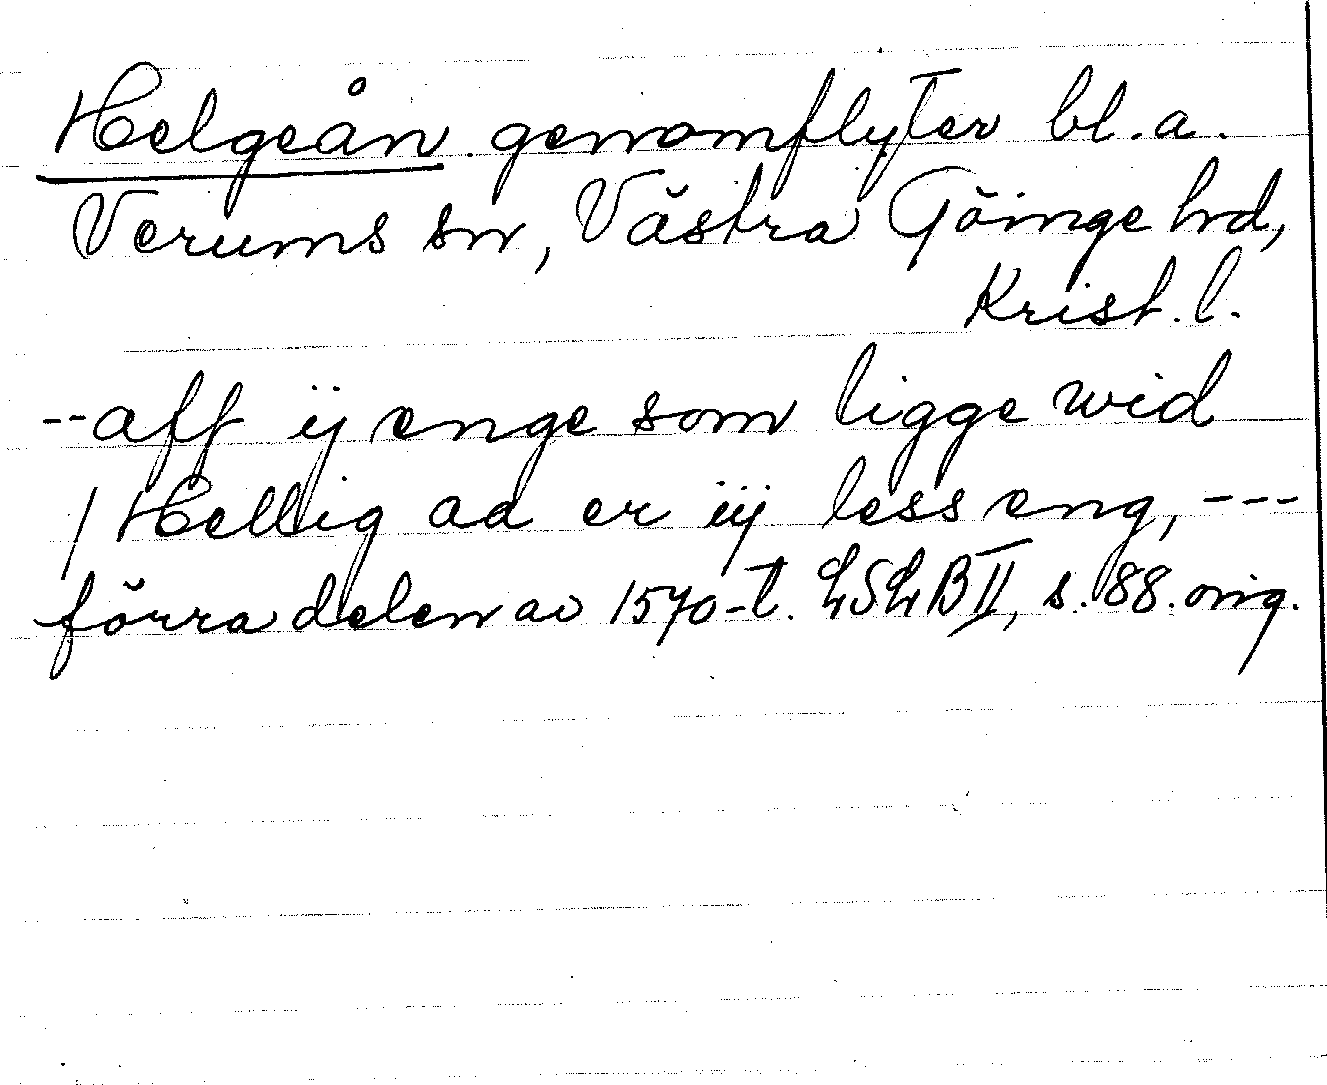 Helgeån genomflyter bl.a.
Verums sn, Västra Göinge hd,
Krist.l.
--aff ij enge som ligge wid
/ Hellig aa er iij less eng, ---
förra delen av 1570-t. LSLB II, s. 188. orig.